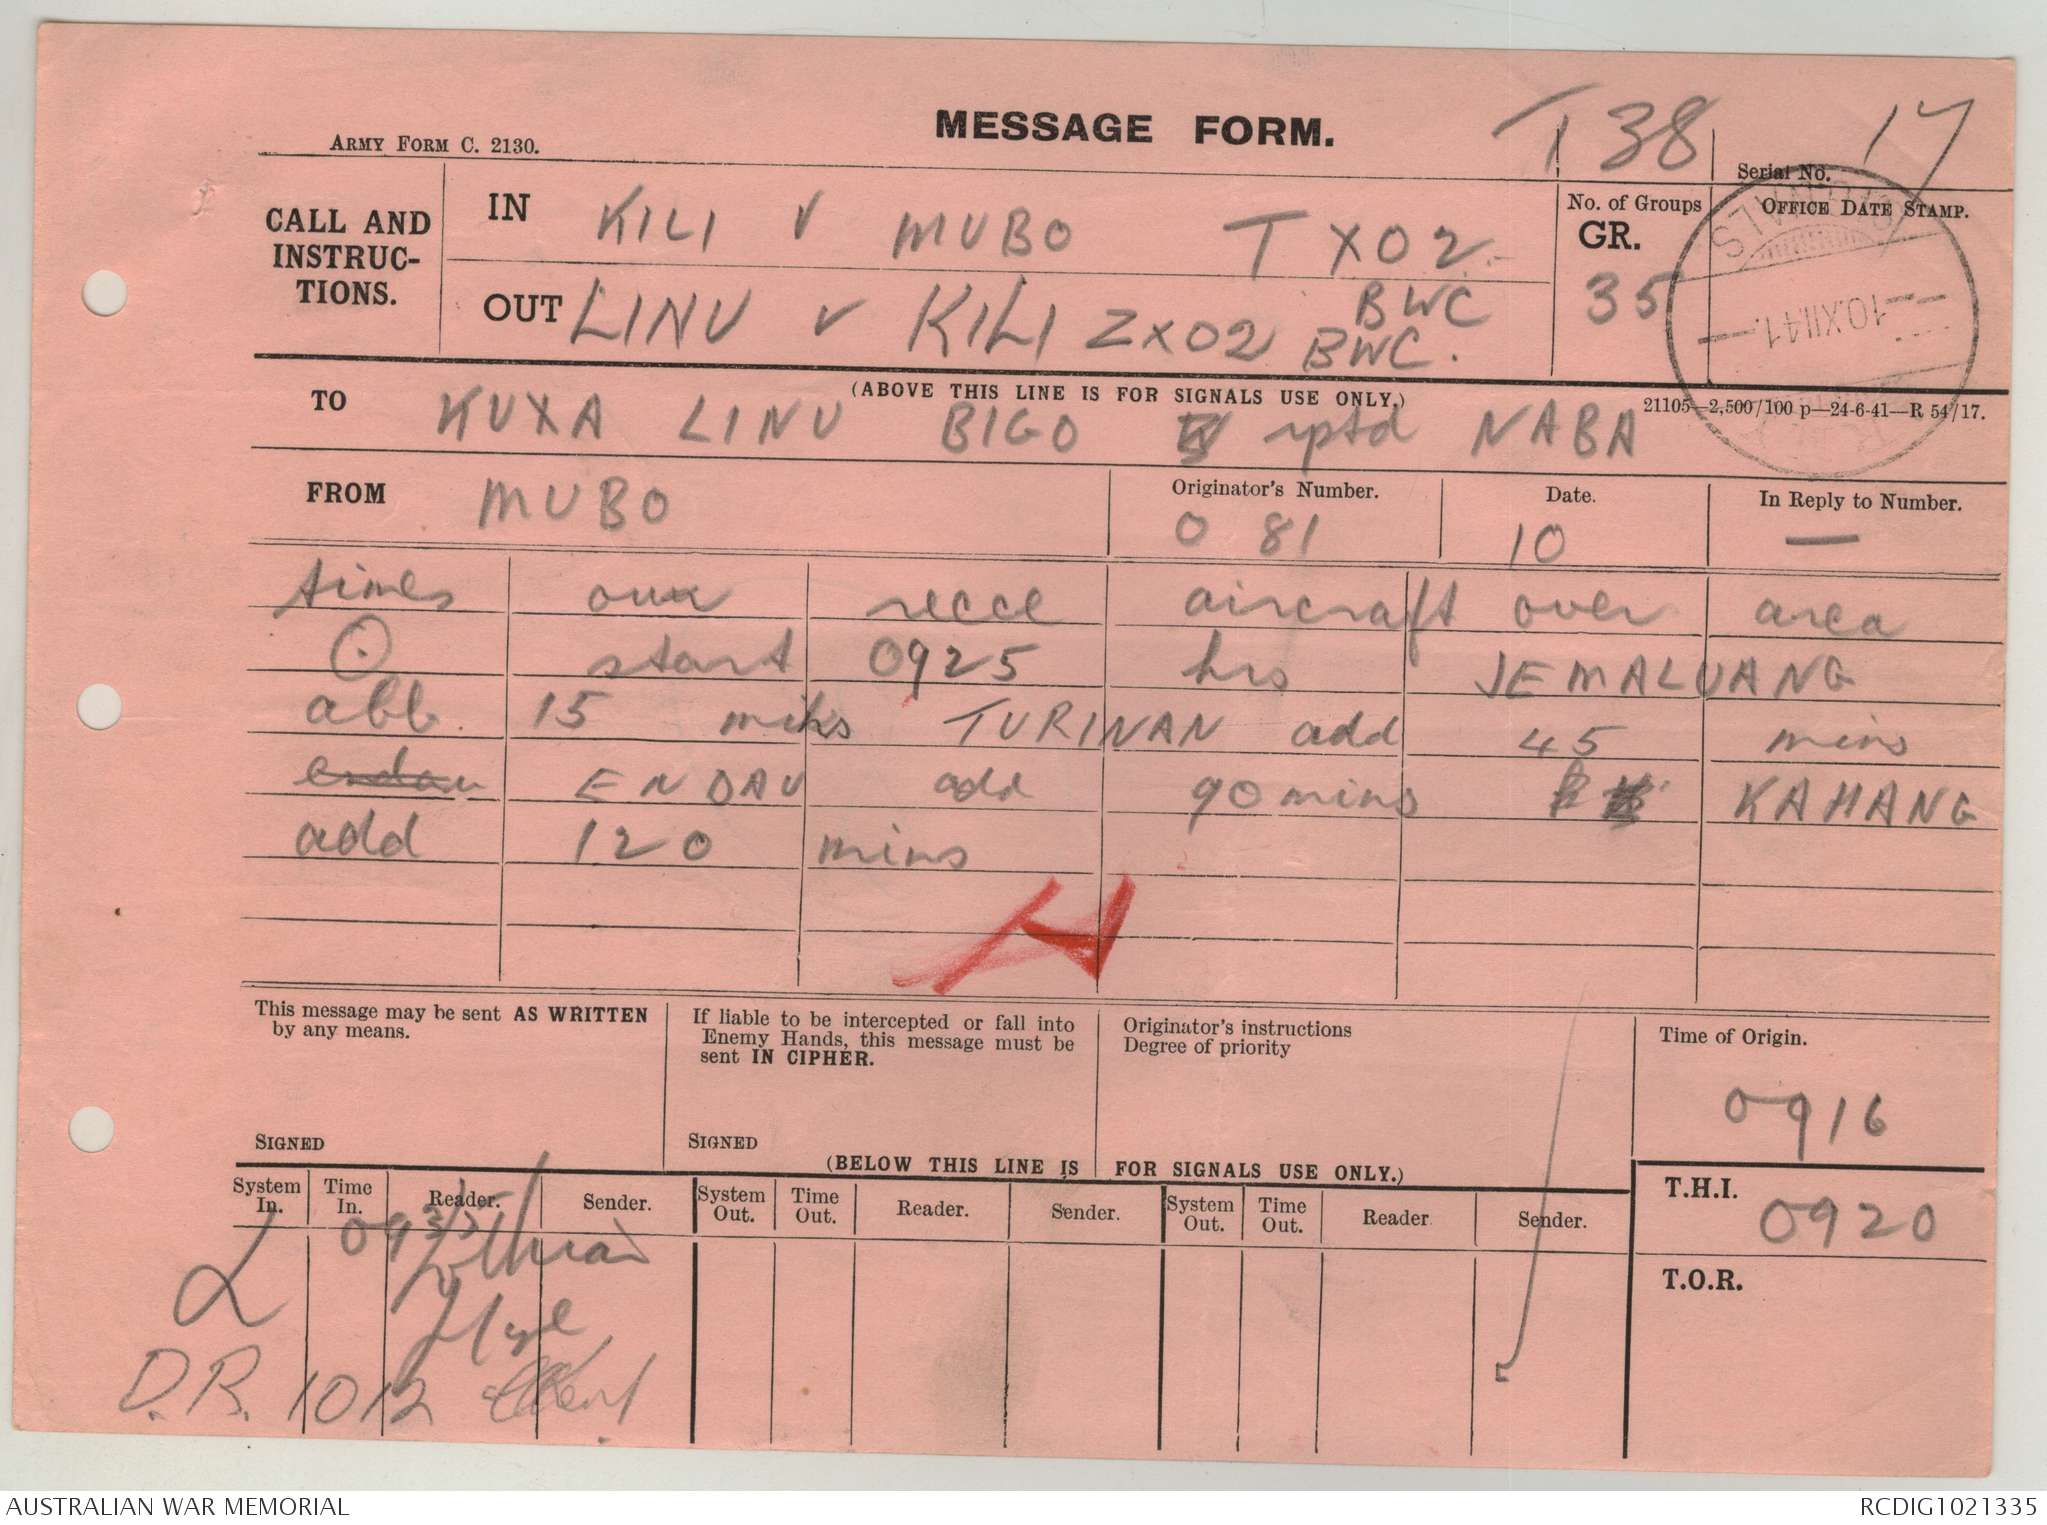 MESSAGE FORM.
T 38
17
ARMY FORM C. 2130.
Serial No.
CALL AND INSTRUC-TIONS.
IN KILI V MUBO T X02 BWC
OUT LINU V KILI ZX02 BWC.
No. of Groups
GR.
35
OFFICE DATE STAMP.
SIGNALS
10.XII.41.
(ABOVE THIS LINE IS FOR SIGNALS USE ONLY.)
21105—2,500/100 p—24-6-41—R 54/17.
TO KUXA LINU BIGO rptd NABA
FROM MUBO
Originator's Number.
0 81
Date.
10
In Reply to Number.
—
times our recce aircraft over area
start 0925 hrs JEMALUANG
add 15 mins TURINAN add 45 mins
endau ENDAU add 90 mins KAHANG
add 120 mins
H
This message may be sent AS WRITTEN
by any means.
SIGNED
If liable to be intercepted or fall into
Enemy Hands, this message must be
sent IN CIPHER.
SIGNED
Originator's instructions
Degree of priority
Time of Origin.
0916
(BELOW THIS LINE IS FOR SIGNALS USE ONLY.)
T.H.I.
0920
T.O.R.
System In. Time In. Reader. Sender. System Out. Time Out. Reader. Sender. System Out. Time Out. Reader Sender.
L
D.R. 1012
AUSTRALIAN WAR MEMORIAL
RCDIG1021335